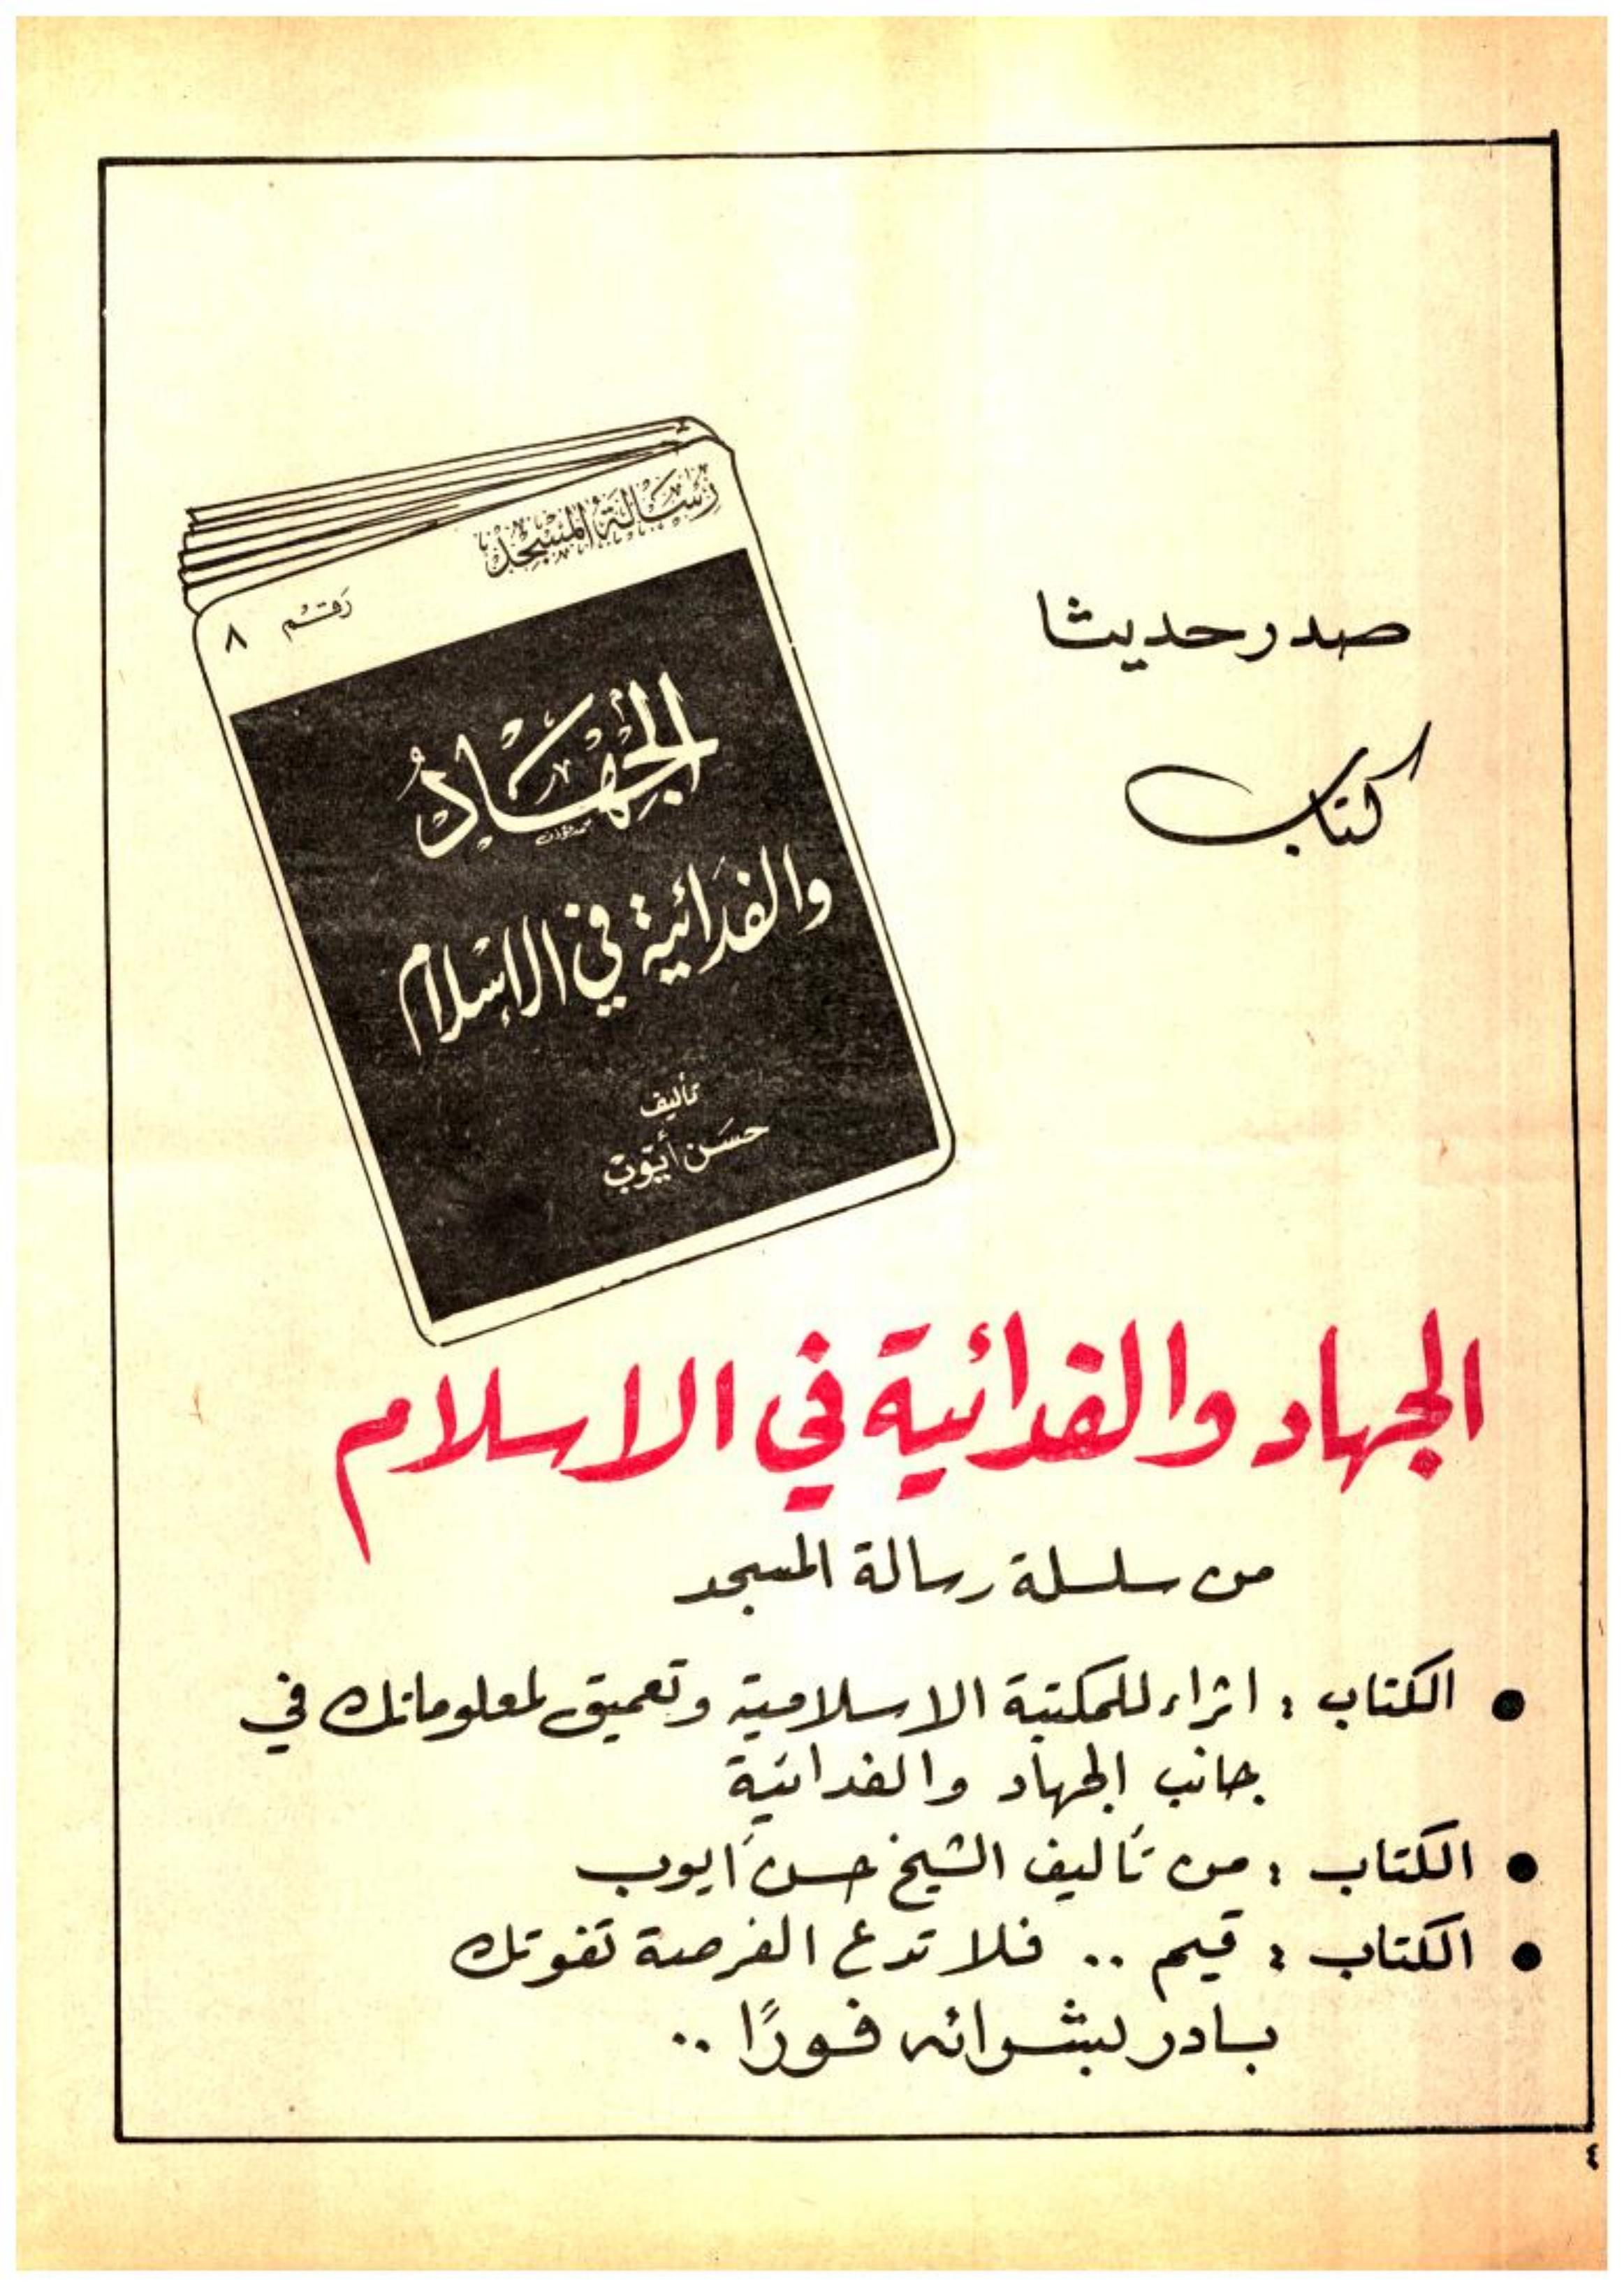 صدر حديثا
كتاب
رسالة المسجد
رقم ٨
الجهاد
والفدائية في الإسلام
تأليف
حسن أيوب
الجهاد والفدائية في الاسلام
من سلسلة رسالة المسجد
● الكتاب : اثراء للمكتبة الاسلامية وتعميق لمعلوماتك في
جانب الجهاد والفدائية
● الكتاب : من تأليف الشيخ حسن أيوب
● الكتاب : قيم .. فلا تدع الفرصة تفوتك
بادر بشرائه فورًا ..
٤